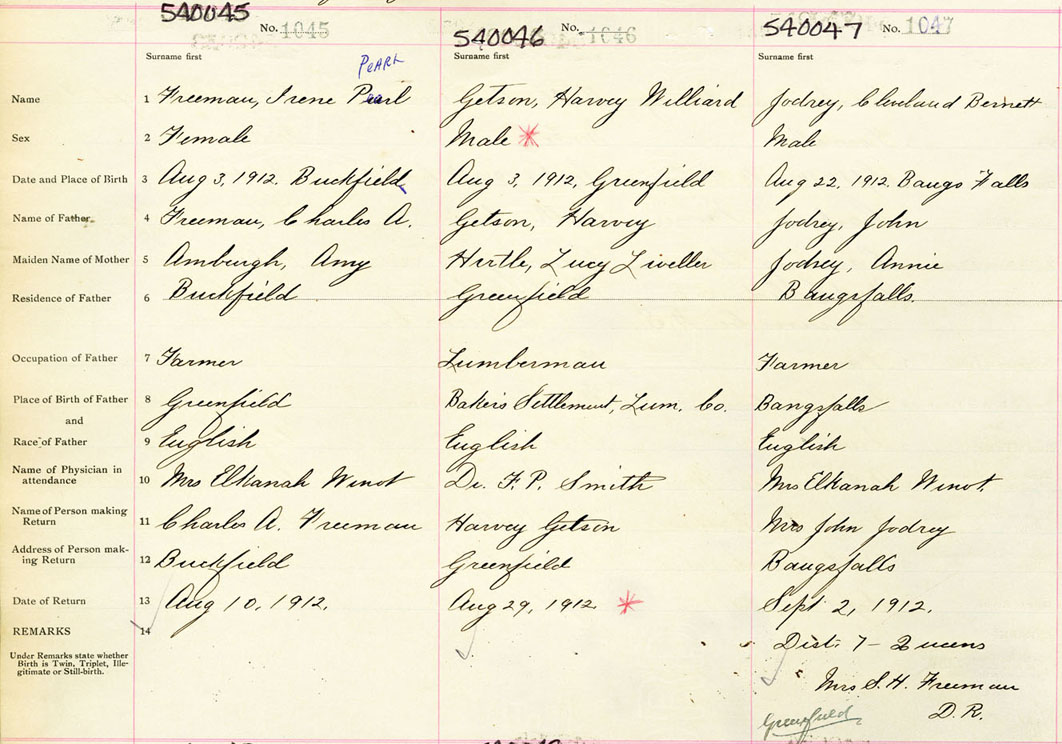 540045 No. 1045 540046 No. 1046 540047 No. 1047
Surname first Surname first Surname first
PEARL
Name 1 Freeman, Irene Pearl Getson, Harvey Williard Jodrey, Cleveland Bernett
Sex 2 Female Male Male
Date and Place of Birth 3 Aug 3, 1912. Buckfield Aug 3, 1912, Greenfield Aug 22, 1912. Bangs Falls
Name of Father 4 Freeman, Charles A. Getson, Harvey Jodrey, John
Maiden Name of Mother 5 Amburgh, Amy Hirtle, Lucy Liveller Jodrey, Annie
Residence of Father 6 Buckfield Greenfield Bangsfalls.
Occupation of Father 7 Farmer Lumberman Farmer
Place of Birth of Father 8 Greenfield Bakers Settlement, Lun. Co. Bangsfalls
and
Race of Father 9 English English English
Name of Physician in
attendance 10 Mrs Elkanah Winot Dr. F. P. Smith Mrs Elkanah Winot.
Name of Person making
Return 11 Charles A. Freeman Harvey Getson Mrs John Jodrey
Address of Person mak-
ing Return 12 Buckfield Greenfield Bangsfalls
Date of Return 13 Aug 10, 1912. Aug 29, 1912 Sept 2, 1912.
REMARKS 14
Under Remarks state whether
Birth is Twin, Triplet, Ille-
gitimate or Still-birth.
Dist. 7 - Queens
Mrs S. H. Freeman
D. R.
Greenfield